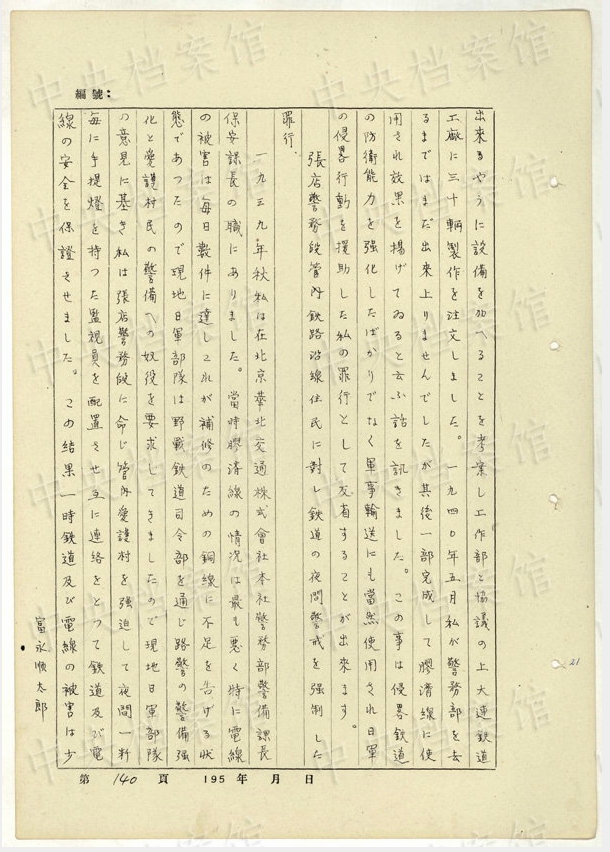 編號：
出來るやうに設備を加へることを考案し工作部と協議の上大連鉄道
工廠に三十輌製作を注文しました。一九四〇年五月私が警務部を去
るまではまだ出來上りませんでしたが其後一部完成して膠濟線に使
用され效果を揚げてゐると云ふ話を訊きました。この事は侵畧鉄道
の防衛能力を強化したばかりでなく軍事輸送にも當然使用され日軍
の侵畧行動を援助した私の罪行として反省することが出來ます。
張店警務段管内鉄路沿線住民に対し鉄道の夜間警戒を強制した
罪行、
一九三九年秋私は在北京華北交通株式會社本社警務部警備課長
保安課長の職にありました。當時膠濟線の情況は最も悪く特に電線
の被害は毎日数件に達しこれが補修のための銅線に不足を告げる状
態であつたので現地日軍部隊は野戦鉄道司令部を通じ路警の警備強
化と愛護村民の警備への奴役を要求してきましたので現地日軍部隊
の意見に基き私は張店警務段に命じ管内愛護村を強迫して夜間一粁
毎に手提燈を持つた監視員を配置させ互に連絡をとつて鉄道及び電
線の安全を保證させました。この結果一時鉄道及び電線の被害は少
富永順太郎
21
第 140 頁 195 年 月 日
中央档案馆